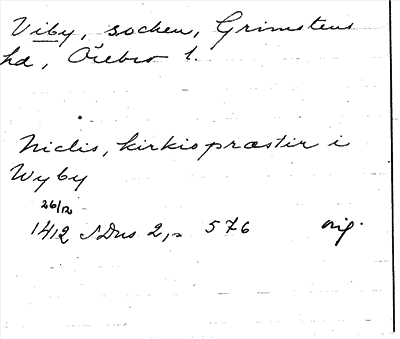 Viby, socken, Grimstens
hd, Örebro l.
Niclis, kirkiopræstir i
Wyby
26/12
1412 SDns 2, s 576 orig.